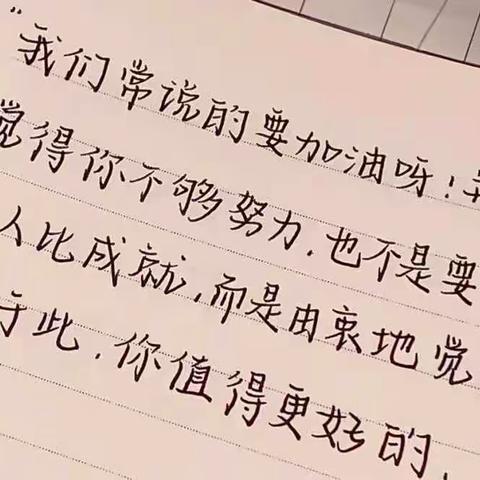 “我们常说的要加油呀！
觉得你不够努力.也不是要
人比成就,而是由衷地觉
于此.你值得更好的.